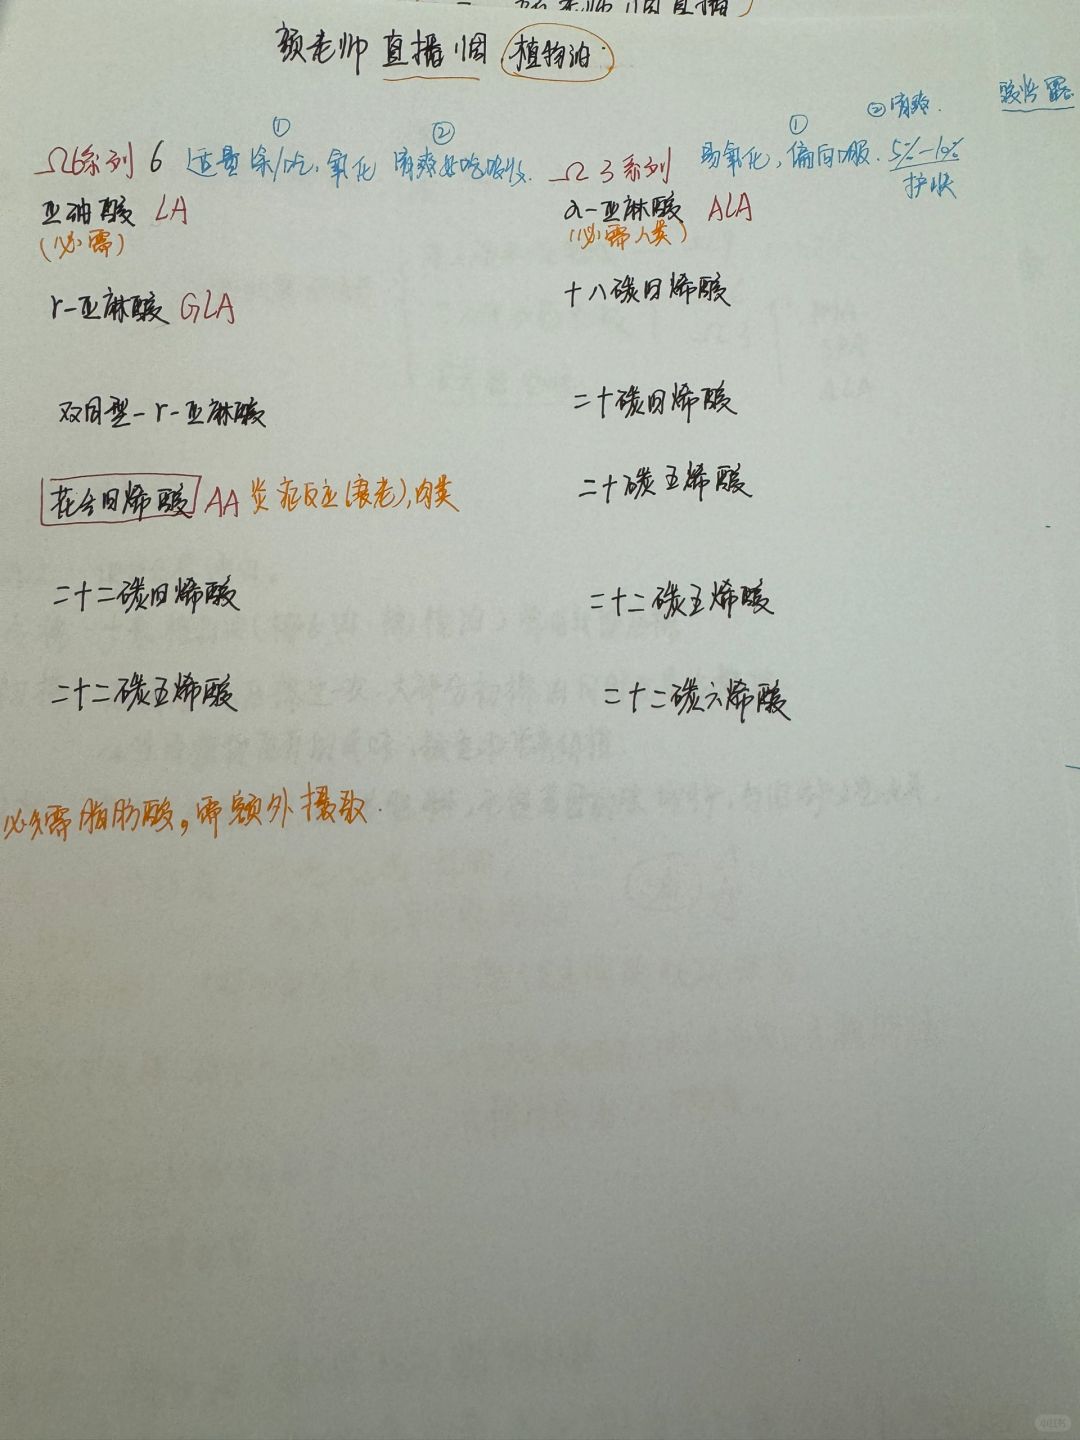 颜老师 直播课 植物油
Ω6系列 6 ① 适量涂/吃,氧化 ② 清爽好吃吸收.
Ω3系列 ① 易氧化,偏向口服. 5%-10% ② 清爽.
护肤
亚油酸 LA
(必需)
α-亚麻酸 ALA
(必需人类)
r-亚麻酸 GLA
十八碳四烯酸
双同型-r-亚麻酸
二十碳四烯酸
花生四烯酸 AA 炎症反应(衰老),肉类
二十碳五烯酸
二十二碳四烯酸
二十二碳五烯酸
二十二碳五烯酸
二十二碳六烯酸
必需脂肪酸,需额外摄取.
小红书